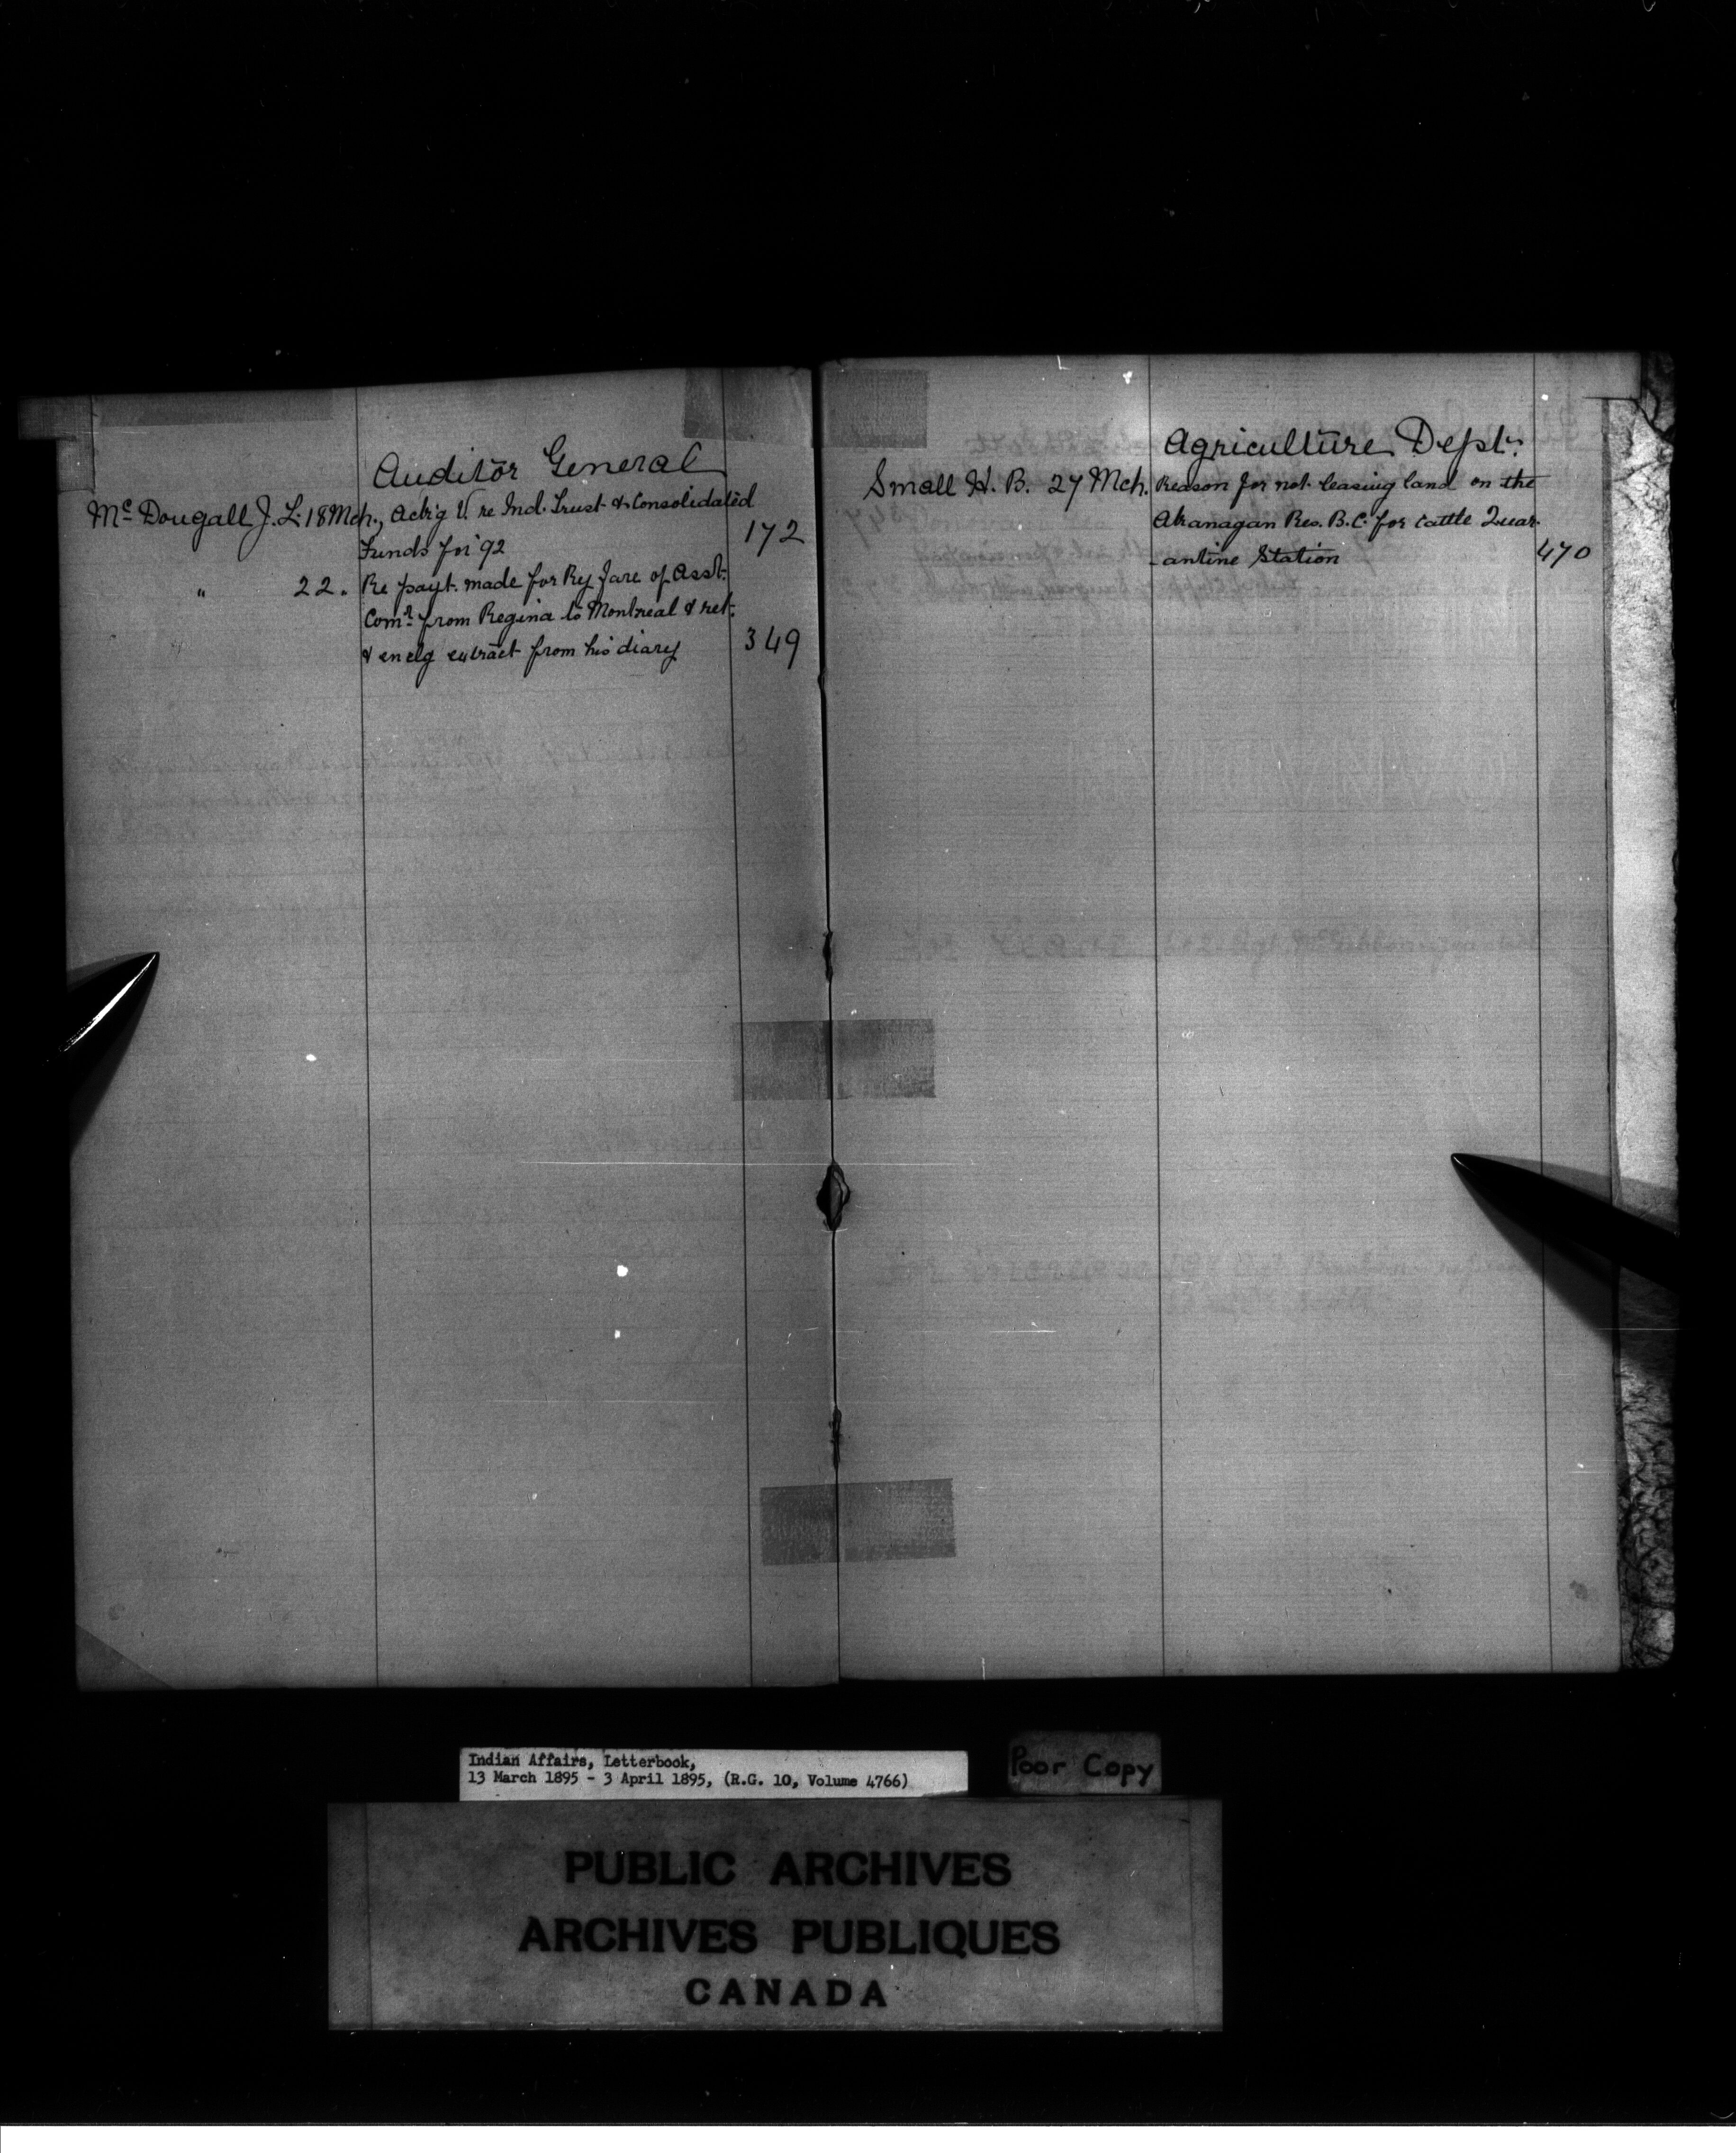 Auditor General
McDougall J. L. 18 Mch., Ack'g V. re Ind. Trust & Consolidated
Funds for '92 172
" 22. Re payt. made for Ry fare of Asst.
Comr. from Regina to Montreal & ret.
& enclg extract from his diary 349
Agriculture Dept.
Small H. B. 27 Mch. Reason for not leasing land on the
Akanagan Res. B.C. for cattle Quar-
-antine Station 470
Indian Affairs, Letterbook,
13 March 1895 - 3 April 1895, (R.G. 10, Volume 4766)
Poor Copy
PUBLIC ARCHIVES
ARCHIVES PUBLIQUES
CANADA